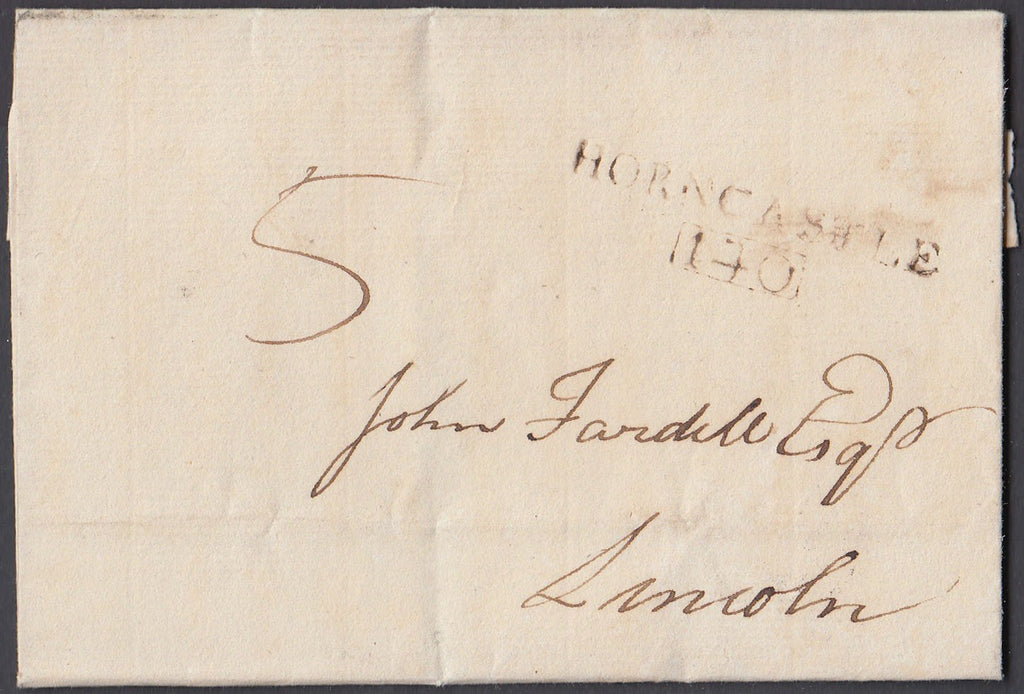 HORNCASTLE
140
5
John Fardell Esqr
Lincoln